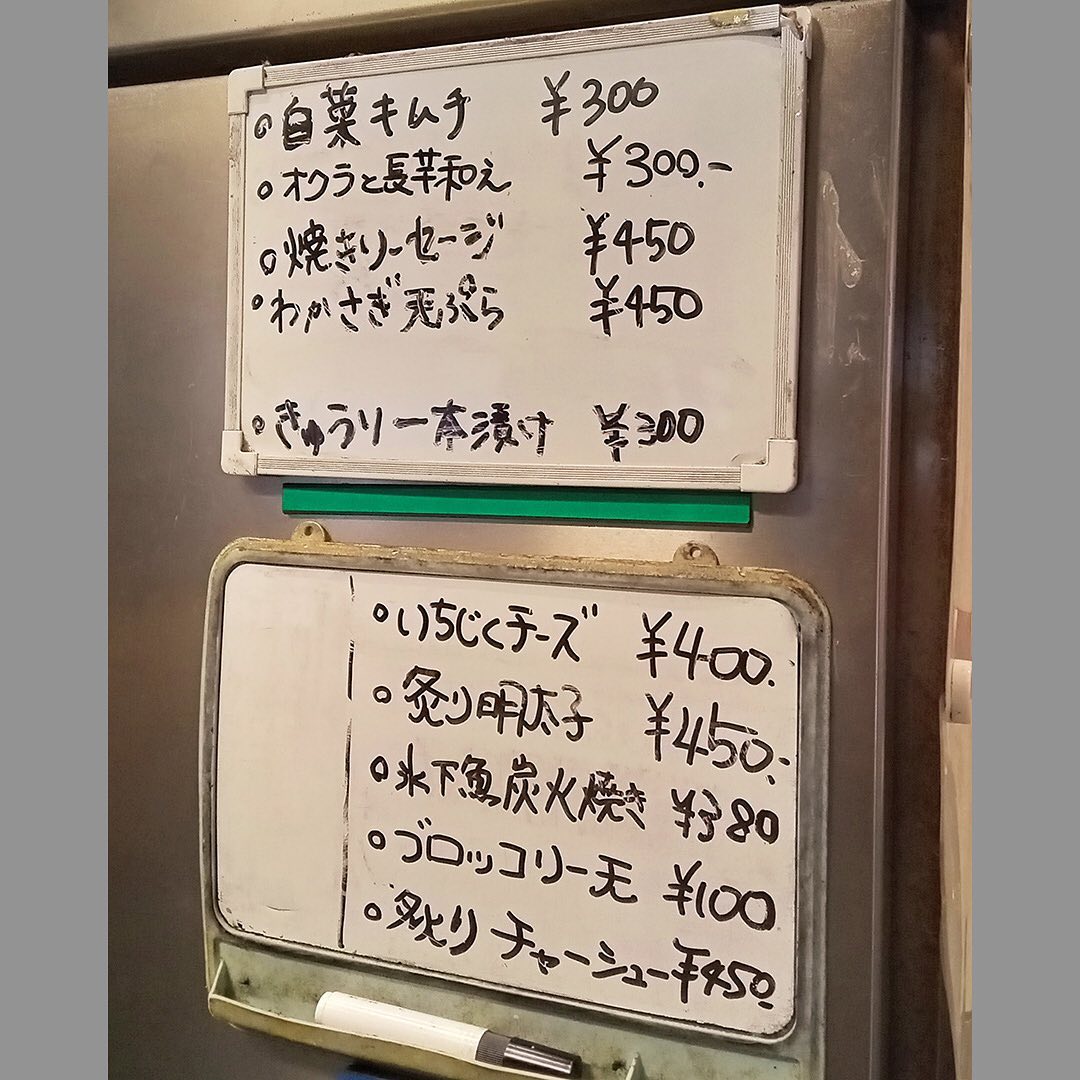 。白菜キムチ ¥300
。オクラと長芋和え ¥300.-
。焼きソーセージ ¥450
。わかさぎ天ぷら ¥450
。きゅうり一本漬け ¥300
。いちじくチーズ ¥400.
。炙り明太子 ¥450.-
。氷下魚炭火焼き ¥380
。ブロッコリー天 ¥100
。炙りチャーシュー ¥450